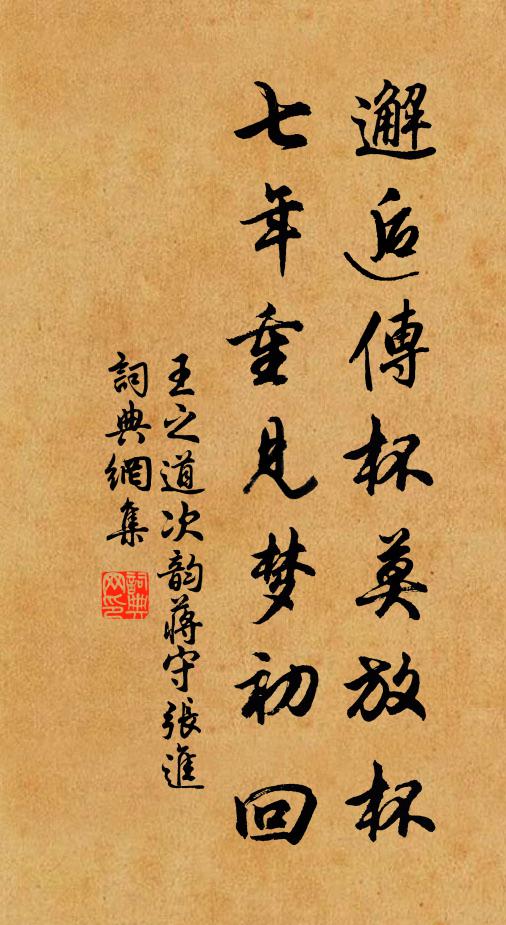 邂逅傳杯莫放杯
七年重見梦初回
王之道次韵蒋守張進
詞典網集
詞典网印